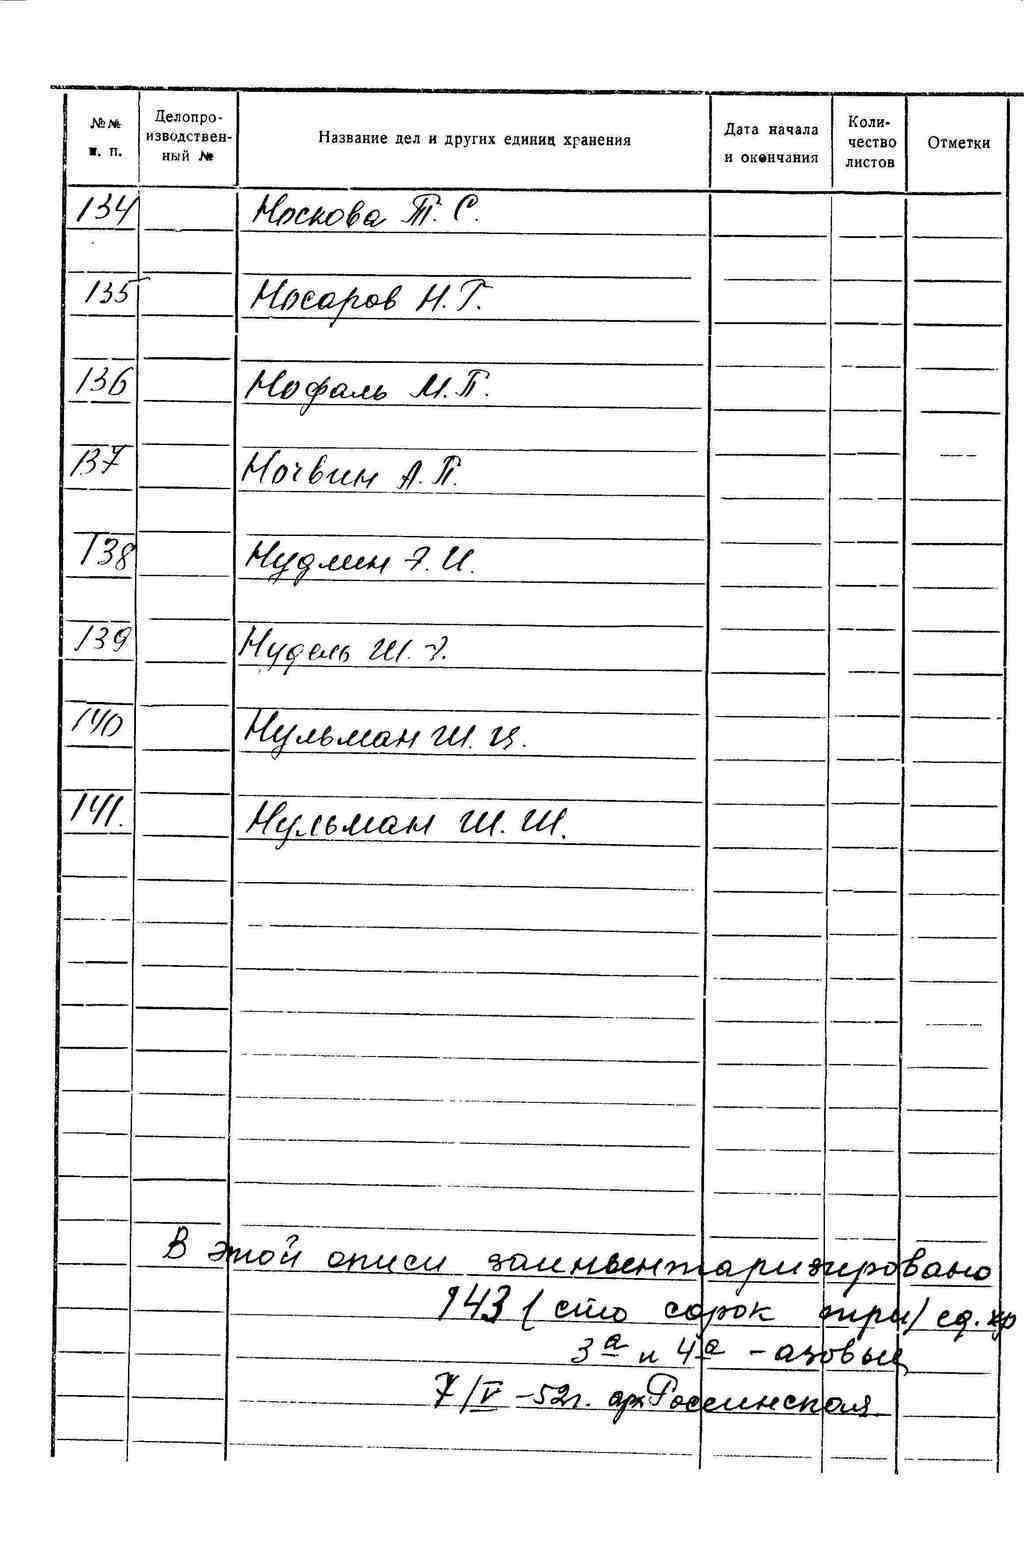 №№ п. п. Делопроизводственный № Название дел и других единиц хранения Дата начала и окончания Количество листов Отметки
134 Носкова Т. С.
135 Носаров Н. Г.
136 Нофаль М. П.
137 Ночвин А. П.
138 Нудлин Э. И.
139 Нудель Ш. Э.
140 Нульман Ш. Ц.
141. Нульман Ш. Ш.
В этой описи заинвентаризировано
143 (сто сорок три) ед. хр
3а и 4а - азовые
7/V -52г. арх.